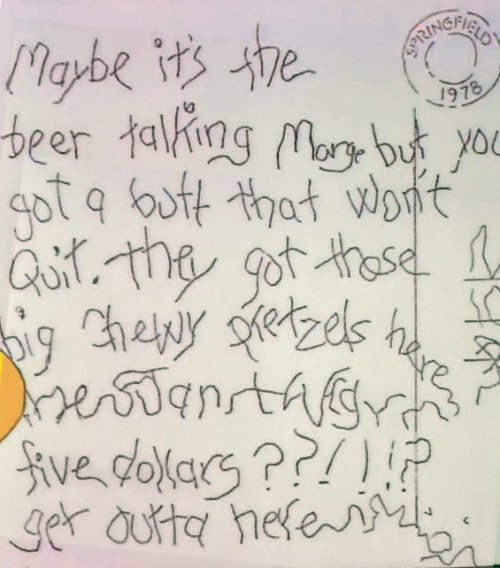 SPRINGFIELD
1978
Maybe it's the
beer talking Marge but you
got a butt that won't
Quit. they got those
big chewy pretzels here
five dollars??!!!?
get outta here